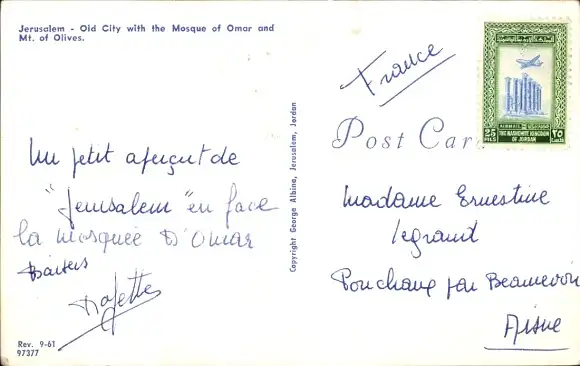 Jerusalem - Old City with the Mosque of Omar and
Mt. of Olives.
France
AIRMAIL
THE HASHEMITE KINGDOM
OF JORDAN
25
MILS
٢٥
Post Car
Un petit aperçut de
"Jerusalem" en face
la mosquée D'Omar
Baisers
Copyright George Albina, Jerusalem, Jordan
Madame Ernestine
Legrand
Ponchaux par Beaurevoir
Aisne
Rev. 9-61
97377